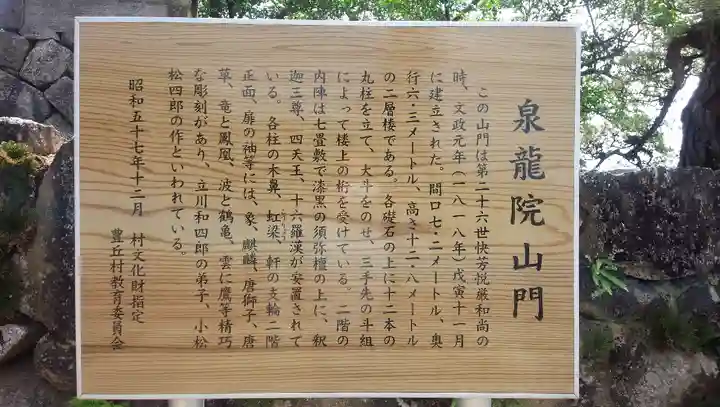 泉龍院山門
この山門は第二十六世快芳悦巌和尚の
時、文政元年(一八一八年)戊寅十一月
に建立された。間口七・二メートル、奥
行六・三メートル、高さ十二・八メートル
の二層楼である。各礎石の上に十二本の
丸柱を立て、大斗をのせ、三手先の斗組
によって楼上の桁を受けている。二階の
内陣は七畳敷で漆黒の須弥檀の上に、釈
迦三尊、四天王、十六羅漢が安置されて
いる。各柱の木鼻、虹梁、軒の支輪二階
正面、扉の袖等には、象、麒麟、唐獅子、唐
草、竜と鳳凰、波と鶴亀、雲に鷹等精巧
な彫刻があり、立川和四郎の弟子、小松
松四郎の作といわれている。
昭和五十七年十二月 村文化財指定
豊丘村教育委員会